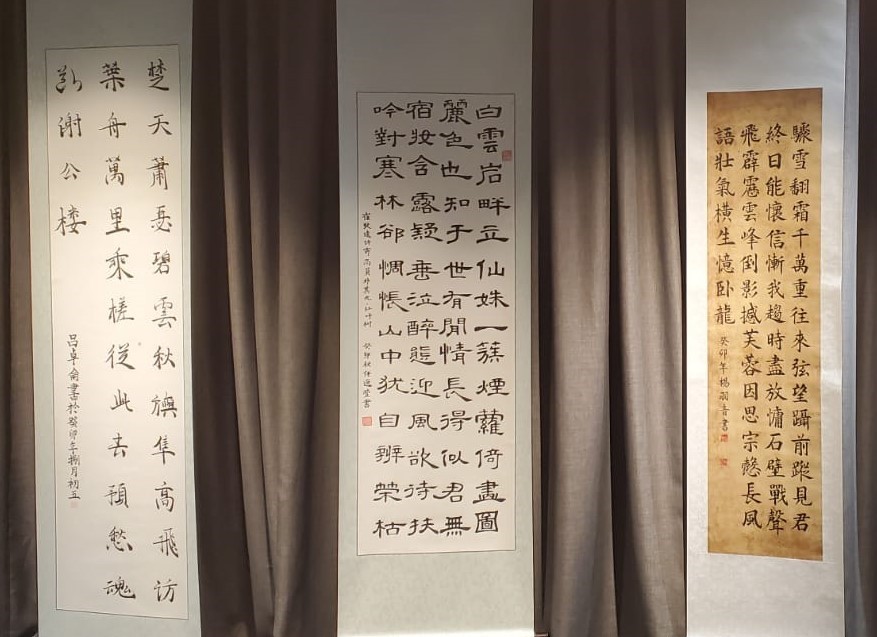 驟雪翻霜千萬重往來弦望躡前蹤見君
終日能懷信慚我趨時盡放慵石壁戰聲
飛霹靂雲峰倒影撼芙蓉因思宗慤長風
語壯氣橫生憶卧龍
癸卯年楊羽音書
白雲岩畔立仙姝一簇煙蘿倚畫圖
麗色也知于世有閒情長得似君無
宿妝含露疑垂泣醉態迎風欲待扶
吟對寒林卻惆悵山中犹自辨榮枯
崔致遠詩 其九·红叶树 癸卯秋任逸堂書
楚天蕭瑟碧雲秋旟隼高飛訪
葉舟萬里乘槎從此去預愁魂
斷谢公楼
吕卓侖書於癸卯年捌月初五